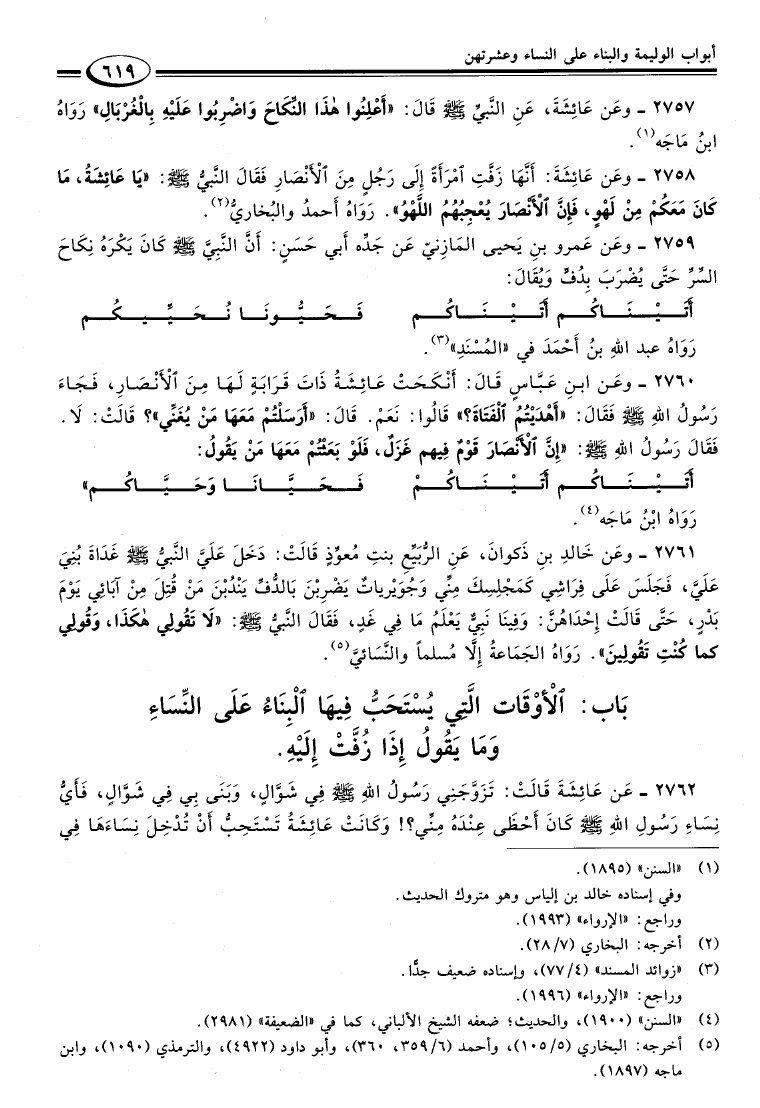 أبواب الوليمة والبناء على النساء وعشرتهن
٦١٩
٢٧٥٧ - وعَن عَائِشَةَ، عَنِ النَّبِيِّ ﷺ قَالَ: «أَعْلِنُوا هٰذَا النِّكَاحَ وَاضْرِبُوا عَلَيْهِ بِالْغُرْبَالِ» رَوَاهُ
ابنُ مَاجَه(١).
٢٧٥٨ - وعَن عَائِشَةَ: أَنَّهَا زَفَّتِ ٱمْرَأَةً إِلَى رَجُلٍ مِنَ ٱلْأَنْصَارِ فَقَالَ النَّبِيُّ ﷺ: «يَا عَائِشَةُ، مَا
كَانَ مَعَكُمْ مِنْ لَهْوٍ، فَإِنَّ ٱلْأَنْصَارَ يُعْجِبُهُمُ اللَّهْوُ». رَوَاهُ أحمدُ والبُخاريُّ(٢).
٢٧٥٩ - وعَن عَمرو بنِ يَحيى المَازِنيّ عَن جَدِّه أبي حَسَنٍ: أَنَّ النَّبِيَّ ﷺ كَانَ يَكْرَهُ نِكَاحَ
السِّرِّ حَتَّى يُضْرَبَ بِدُفٍّ وَيُقَالَ:
أَتَـيْـنَـاكُـم أَتَـيْـنَـاكُـم فَـحَـيُّـونَـا نُـحَـيِّـيـكُـم
رَوَاهُ عبد اللهِ بنُ أَحْمَدَ في «المُسْنَدِ»(٣).
٢٧٦٠ - وعَن ابنِ عَبَّاسٍ قَالَ: أَنْكَحَتْ عَائِشَةُ ذَاتَ قَرَابَةٍ لَهَا مِنَ ٱلْأَنْصَارِ، فَجَاءَ
رَسُولُ اللهِ ﷺ فَقَالَ: «أَهْدَيْتُمُ ٱلْفَتَاةَ؟» قَالُوا: نَعَمْ. قَالَ: «أَرْسَلْتُمْ مَعَهَا مَنْ يُغَنِّي»؟ قَالَتْ: لَا.
فَقَالَ رَسُولُ اللهِ ﷺ: «إِنَّ ٱلْأَنْصَارَ قَوْمٌ فِيهِم غَزَلٌ، فَلَوْ بَعَثْتُمْ مَعَهَا مَنْ يَقُولُ:
أَتَـيْـنَـاكُـم أَتَـيْـنَـاكُـمْ فَـحَـيَّـانَـا وَحَـيَّـاكُـم»
رَوَاهُ ابْنُ مَاجَه(٤).
٢٧٦١ - وعَن خَالِدِ بنِ ذَكوانَ، عَنِ الرُّبَيِّعِ بنتِ مُعوِّذٍ قَالَتْ: دَخَلَ عَلَيَّ النَّبِيُّ ﷺ غَدَاةَ بُنِيَ
عَلَيَّ، فَجَلَسَ عَلَى فِرَاشِي كَمَجْلِسِكَ مِنِّي وَجُوَيْرِياتٌ يَضْرِبْنَ بَالدُّفِّ يَنْدُبْنَ مَنْ قُتِلَ مِنْ آبَائِي يَوْمَ
بَدْرٍ، حَتَّى قَالَتْ إِحْدَاهُنَّ: وَفِينَا نَبِيٌّ يَعْلَمُ مَا فِي غَدٍ، فَقَالَ النَّبِيُّ ﷺ: «لَا تَقُولِي هٰكَذَا، وَقُولِي
كما كُنْتِ تَقُولِينَ». رَوَاهُ الجَماعةُ إِلَّا مُسلماً والنَّسائيَّ(٥).
بَاب: ٱلْأَوْقَات الَّتِي يُسْتَحَبُّ فِيهَا ٱلْبِنَاءُ عَلَى النِّسَاءِ
وَمَا يَقُولُ إِذَا زُفَّتْ إِلَيْهِ.
٢٧٦٢ - عَن عَائِشَةَ قَالَتْ: تَزَوَّجَنِي رَسُولُ اللهِ ﷺ فِي شَوَّالٍ، وَبَنَى بِي فِي شَوَّالٍ، فَأَيُّ
نِسَاءِ رَسُولِ اللهِ ﷺ كَانَ أَحْظَى عِنْدَهُ مِنِّي؟! وَكَانَتْ عَائِشَةُ تَسْتَحِبُّ أَنْ تُدْخِلَ نِسَاءَهَا فِي
(١) «السنن» (١٨٩٥).
وفي إسناده خالد بن إلياس وهو متروك الحديث.
وراجع: «الإرواء» (١٩٩٣).
(٢) أخرجه: البخاري (٢٨/٧).
(٣) «زوائد المسند» (٧٧/٤)، وإسناده ضعيف جدًّا.
وراجع: «الإرواء» (١٩٩٦).
(٤) «السنن» (١٩٠٠)، والحديث؛ ضعفه الشيخ الألباني، كما في «الضعيفة» (٢٩٨١).
(٥) أخرجه: البخاري (١٠٥/٥)، وأحمد (٣٥٩/٦، ٣٦٠)، وأبو داود (٤٩٢٢)، والترمذي (١٠٩٠)، وابن
ماجه (١٨٩٧).